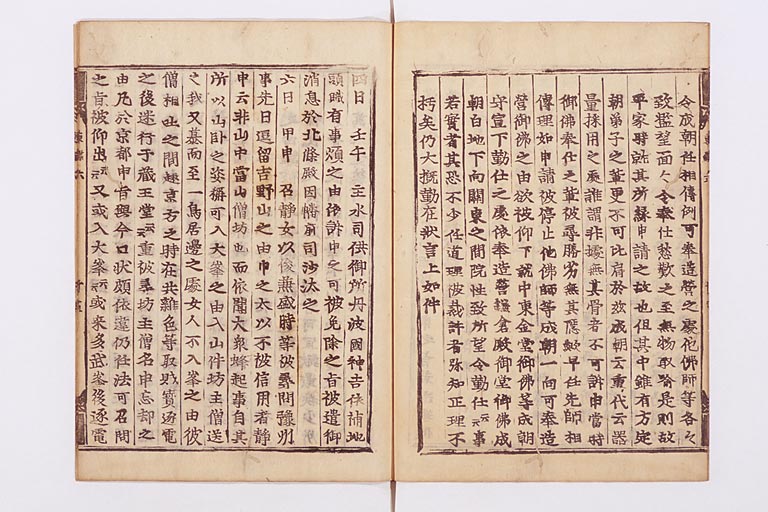 令成朝任相傳例可奉造營之處他佛師等各々
致濫望面々令奉仕愁歎之至無物取喩是則故
平家時就其所緣申請之故也但其中雖有方定
朝弟子之輩更不可比肩於彼成朝云重代云器
量採用之處誰謂非據無其骨者不可計申當時
御佛奉仕之輩被尋勝劣無其隱歟早任先師相
傳理如申請被停止他佛師等成朝一向可奉造
營御佛之由欲被仰下就中東金堂御佛等成朝
守宣下勤仕之處依奉造營鎌倉殿御堂御佛成
朝白地下向關東之間院性致所望令勤仕云々事
若實者其恐不少任道理被裁許者弥知正理不
朽矣仍大概勤在狀言上如件
四日 壬午 主水司供御所丹波國神吉保補地
頭職有事煩之由依訴申之可被免除之旨被遣御
消息於北條殿因幡前司沙汰之
六日 甲申 召靜女以俊兼盛時等被尋問豫州
事先日逗留吉野山之由申之太以不被信用者靜
申云非山中當山僧坊也而依聞大衆蜂起事自其
所以山臥之姿稱可入大峯之由入山件坊主僧送
之我又慕而至一鳥居邊之處女人不入峯之由彼
僧相叱之間赴京方之時在共雜色等取財寶逐電
之後迷行于藏王堂云々重被尋坊主僧名申忘却之
由凡於京都申旨與今口狀頗依違仍任法可召問
之旨被仰出云々又或入大峯云々或來多武峯後逐電